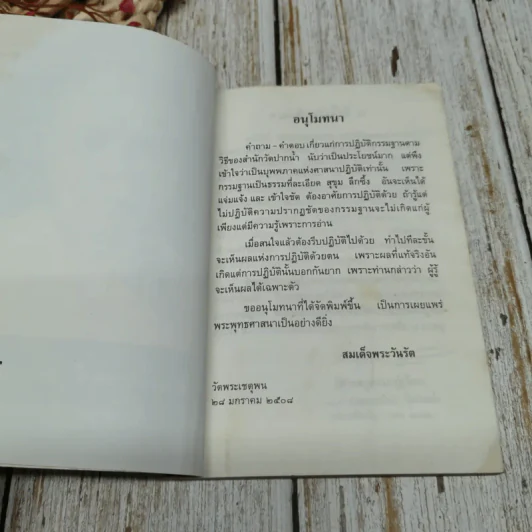 อนุโมทนา
คำถาม – คำตอบ เกี่ยวแก่การปฏิบัติกรรมฐานตาม
วิธีของสำนักวัดปากน้ำ นับว่าเป็นประโยชน์มาก แต่พึง
เข้าใจว่าเป็นบุพพภาคแห่งศาสนาปฏิบัติเท่านั้น เพราะ
กรรมฐานเป็นธรรมที่ละเอียด สุขุม ลึกซึ้ง อันจะเห็นได้
แจ่มแจ้ง และ เข้าใจชัด ต้องอาศัยการปฏิบัติด้วย ถ้ารู้แต่
ไม่ปฏิบัติความปรากฏชัดของกรรมฐานจะไม่เกิดแก่ผู้
เพียงแต่มีความรู้เพราะการอ่าน
เมื่อสนใจแล้วต้องรีบปฏิบัติไปด้วย ทำไปทีละขั้น
จะเห็นผลแห่งการปฏิบัติด้วยตน เพราะผลที่แท้จริงอัน
เกิดแต่การปฏิบัตินั้นบอกกันยาก เพราะท่านกล่าวว่า ผู้รู้
จะเห็นผลได้เฉพาะตัว
ขออนุโมทนาที่ได้จัดพิมพ์ขึ้น เป็นการเผยแพร่
พระพุทธศาสนาเป็นอย่างดียิ่ง
สมเด็จพระวันรัต
วัดพระเชตุพน
๒๘ มกราคม ๒๕๐๘